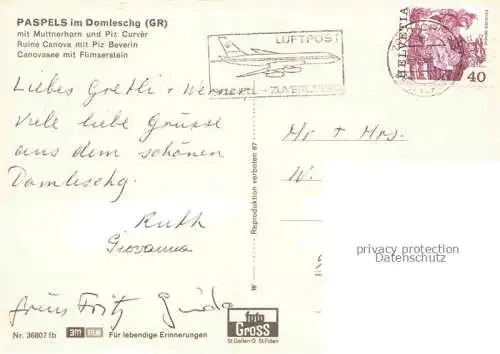 PASPELS im Domleschg (GR)
mit Muttnerhorn und Piz Curvèr
Ruine Canova mit Piz Beverin
Canovasee mit Flimserstein
LUFTPOST
ZUVERLÄSSIG
HELVETIA
40
Liebes Gretli + Werner!
Viele liebe Grüsse
aus dem schönen
Domleschg.
Ruth
Giovanna
Fritz Guido
Mr + Mrs.
W.
privacy protection
Datenschutz
Reproduktion verboten 67
foto
Gross
St.Gallen St.Fiden
Nr. 36807 fb 3M FILM Für lebendige Erinnerungen